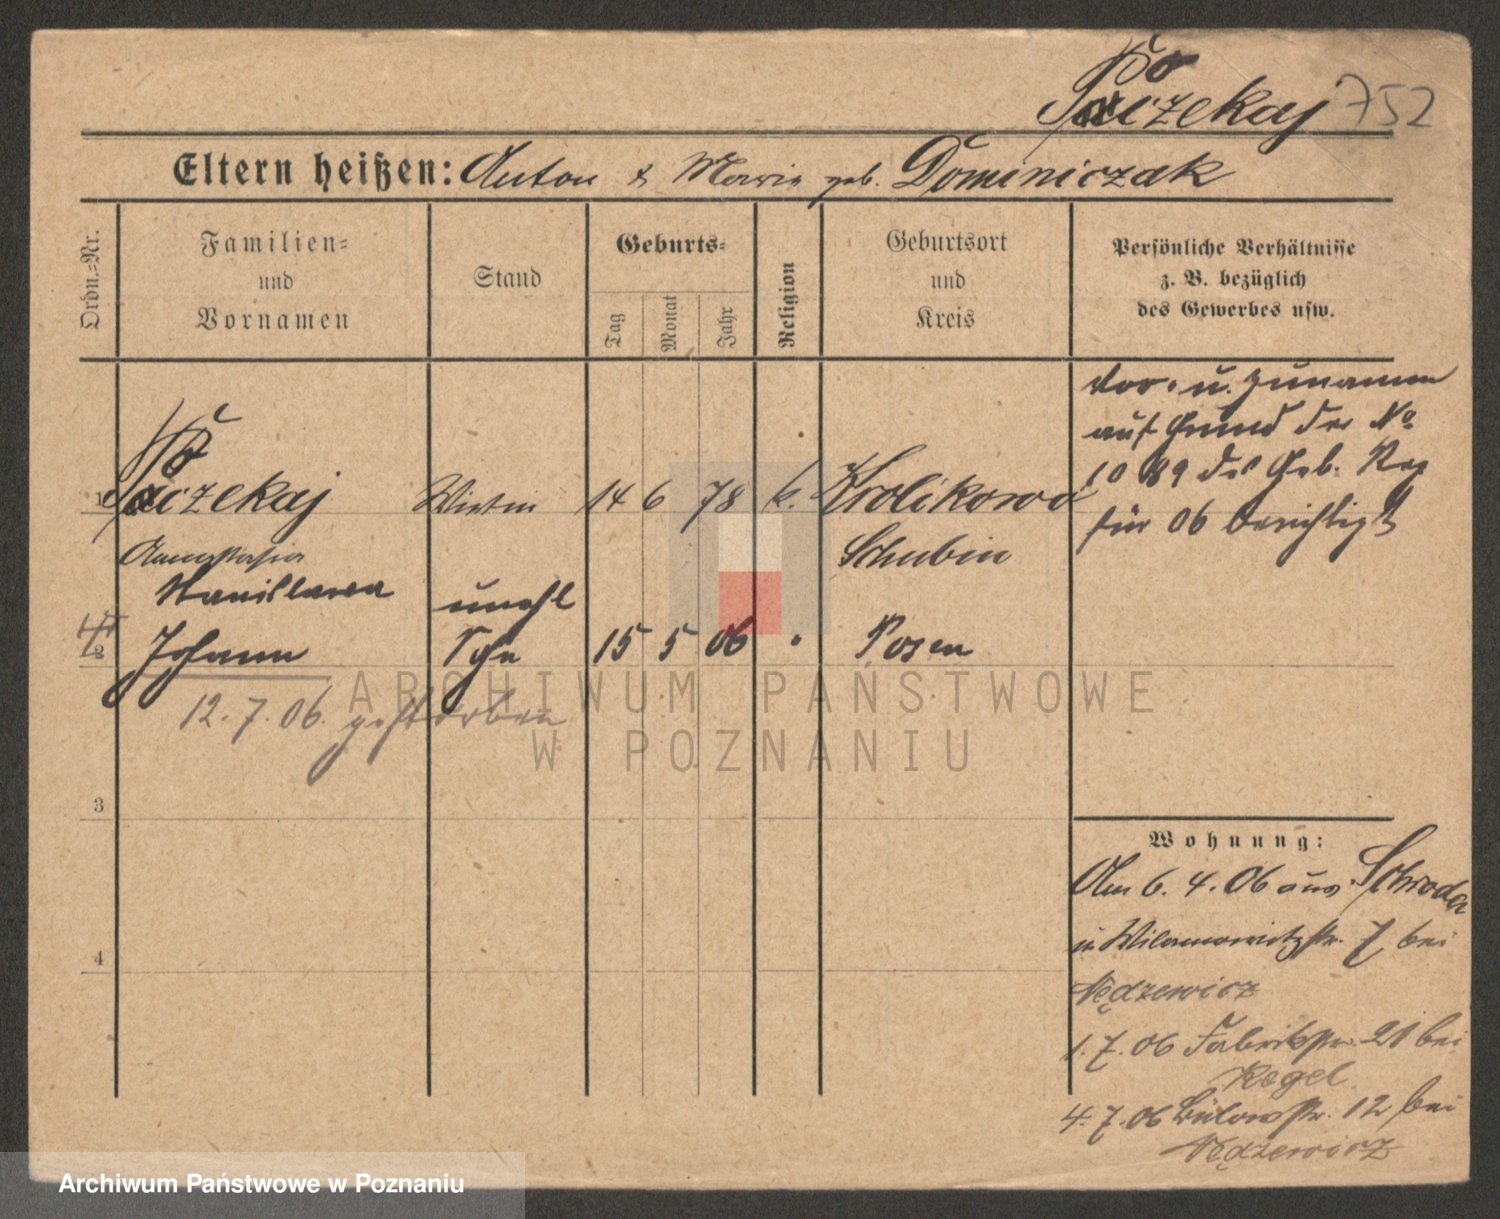 Poczekaj 752
Eltern heißen: Anton & Marie geb. Dominiczak
Ordn.=Nr.
Familien=
und
Vornamen
Stand
Geburts=
Tag
Monat
Jahr
Religion
Geburtsort
und
Kreis
Persönliche Verhältnisse
z. B. bezüglich
des Gewerbes usw.
Vor- u. Zunamen
auf Grund der No
1089 des Geb. Reg
für 06 berichtigt
1 Poczekaj Wirtin 14 6 78 k. Krolikowo
Schubin
Stanislawa
unehl
2 Johann Sohn 15 5 06 " Posen
12.7.06. gestorben
3
4
Wohnung:
Am 6.4.06 aus Schroda
in Wilamowitzstr. 7 bei
Nędzewicz
1.7.06 Fabrikstr. 21 bei
Kegel
4.7.06 Bülowstr. 12 bei
Nędzewicz
ARCHIWUM PAŃSTWOWE
W POZNANIU
Archiwum Państwowe w Poznaniu